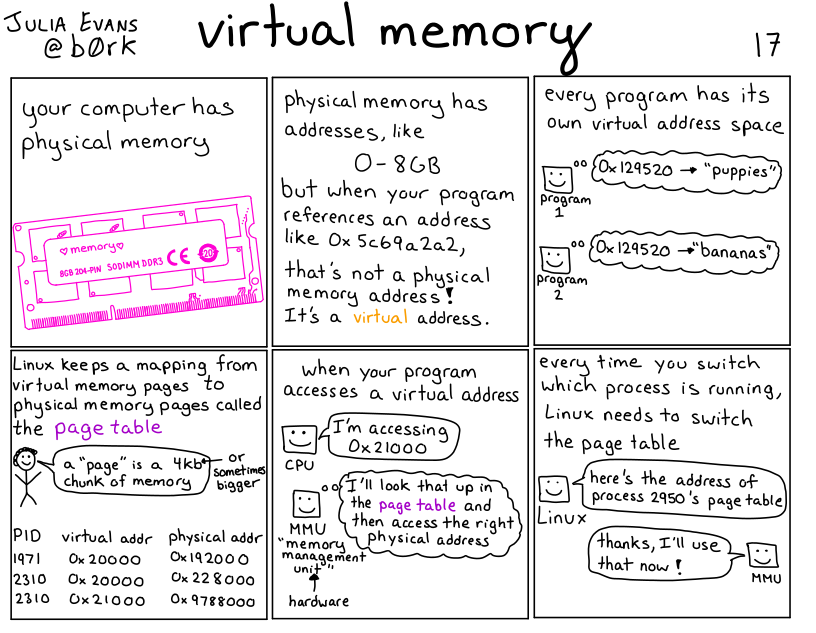 JULIA EVANS
@b0rk
virtual memory
17
your computer has
physical memory
♡memory♡
8GB 204-PIN SODIMM DDR3 CE 20
physical memory has
addresses, like
0-8GB
but when your program
references an address
like 0x5c69a2a2,
that's not a physical
memory address!
It's a virtual address.
every program has its
own virtual address space
program
1
0x129520 → "puppies"
program
2
0x129520 → "bananas"
Linux keeps a mapping from
virtual memory pages to
physical memory pages called
the page table
a "page" is a 4kb
chunk of memory
or
sometimes
bigger
PID virtual addr physical addr
1971 0x20000 0x192000
2310 0x20000 0x228000
2310 0x21000 0x9788000
when your program
accesses a virtual address
CPU
I'm accessing
0x21000
I'll look that up in
the page table and
then access the right
physical address
MMU
"memory
management
unit"
hardware
every time you switch
which process is running,
Linux needs to switch
the page table
Linux
here's the address of
process 2950's page table
thanks, I'll use
that now!
MMU